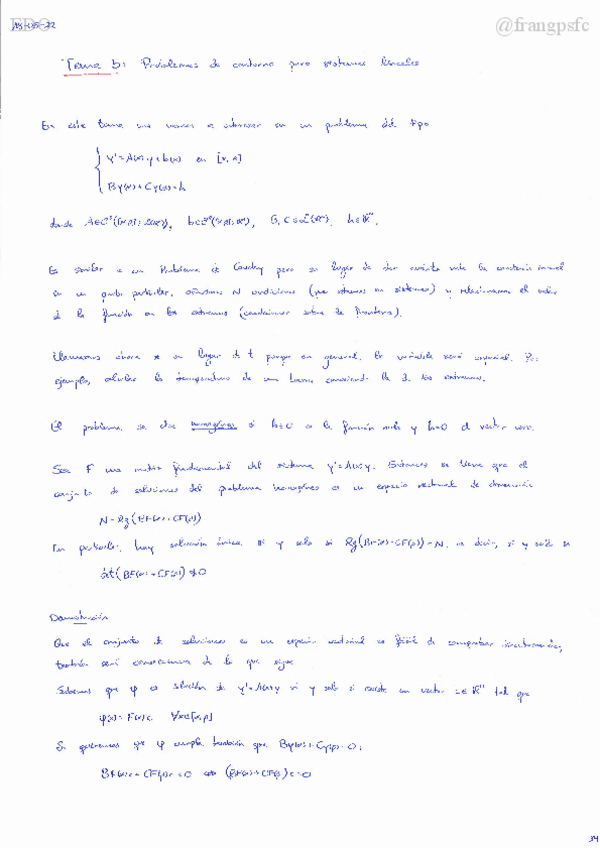 EDO
@frangpsfc
Tema 5: Problemas de contorno para sistemas lineales
En este tema nos vamos a interesar en un problema del tipo
y' = A(x)y + b(x) en [α, β]
By(α) + Cy(β) = h
donde
Es similar a un Problema de Cauchy pero en lugar de dar
en un punto particular, añadimos N condiciones y relacionamos el valor
de la función en los extremos (condiciones sobre la frontera).
Llamamos ahora x en lugar de t porque en general, la variable será espacial. Por
ejemplo, calcular la temperatura de una barra conociendo la de los extremos.
El problema se dice homogéneo si b≡0 es la función nula y h=0 el vector cero.
Sea F una matriz fundamental del sistema y'=A(x)y. Entonces se tiene que el
conjunto de soluciones del problema homogéneo es un espacio vectorial de dimensión
N - Rg(BF(α) + CF(β))
En particular, hay solución única si y solo si Rg(BF(α)+CF(β))=N, es decir, si y solo si
det(BF(α) + CF(β)) ≠ 0
Demostración
Que el conjunto de soluciones es un espacio vectorial es fácil de comprobar directamente,
también será consecuencia de lo que sigue
Sabemos que φ es solución de y'=A(x)y si y solo si existe un vector c∈ℝᴺ tal que
φ(x) = F(x)c ∀x∈[α,β]
Si queremos que φ cumpla también que By(α)+Cy(β)=0:
BF(α)c + CF(β)c = 0 ⇔ (BF(α)+CF(β))c=0
34